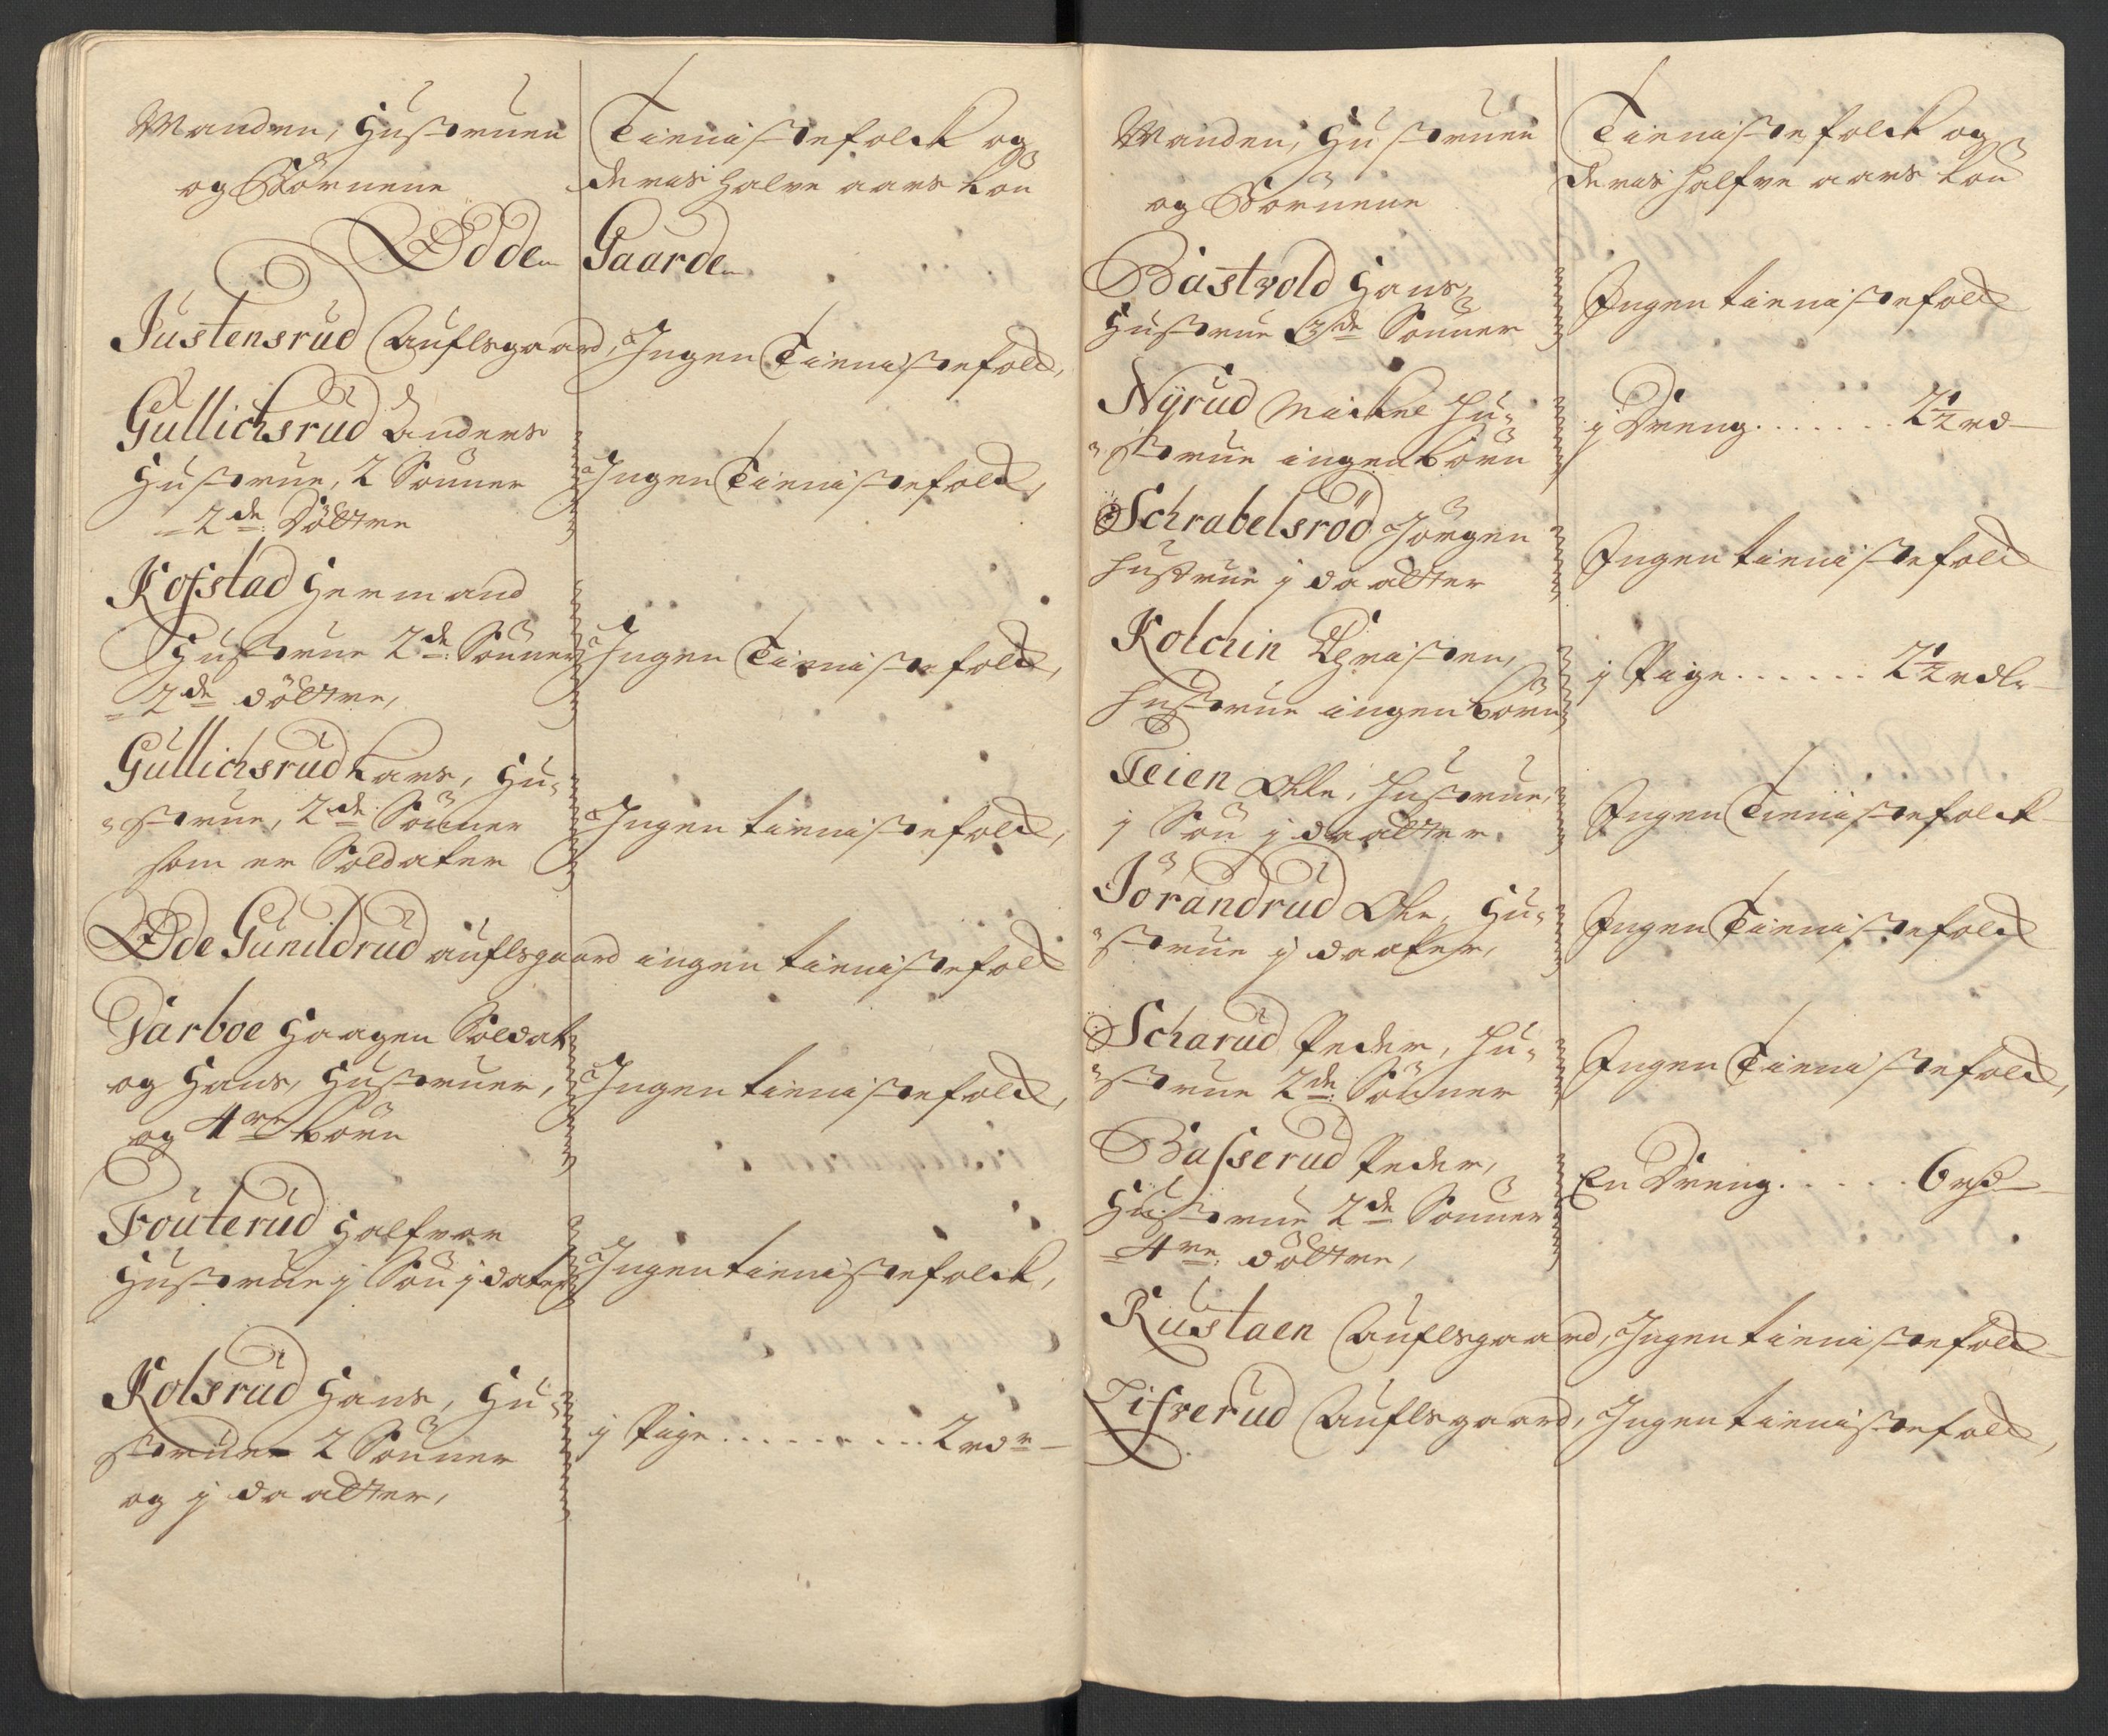 Manden, Hustruen
og Börnene
Tienistefolck og
deris halve aars Lön
Ödde Gaarde
Justensrud Auflsgaard, Ingen Tienistefolck,
Gullichsrud Anders
Hustrue, 2 Sönner
2de Döttre
Ingen Tienistefolck,
Kofstad Hermand
Hustrue 2de Sönner
2de döttre,
Ingen Tienistefolck,
Gullichsrud Lars, Hu-
strue, 2de Sönner
som er Soldater
Ingen tienistefolck,
Øde Gunildrud auflsgaard ingen tienistefolck
Garboe Haagen Soldat
og Hans, Hustruer,
og 4re börn
Ingen tienistefolck,
Fouterud Halfvor
Hustrue j Sön j dater
Ingen tienistefolck,
Kolsrud Hans, Hu-
strue 2 Sönner
og j daatter,
j Pige . . . . . . . . . 2 rdr
Manden, Hustruen
og Börnene
Tienistefolck og
deris halfve aars Lön
Bastvold Hans,
Hustrue 3de Sönner
Ingen tienistefolck
Nÿrud Mickel Hu-
strue ingen börn
j Dreng . . . . . . . 2½ rd
Schrabelsröd Jörgen
Hustrue j daatter
Ingen tienistefolck
Kolchin Christen,
Hustrue ingen börn
j Pige . . . . . . 2½ rdlr
Teien Olle, Hustrue,
j Sön j daatter.
Ingen Tienistefolck
Jörandrud Ole, Hu-
strue j daater,
Ingen Tienistefolck
Scharud Peder, Hu-
strue 2de Sönner
Ingen Tienistefolck,
Basserud Peder,
Hustrue 2de Sönner
4re döttre,
En Dreng . . . . . 6 rd
Rustaen Auflsgaard, Ingen tienistefolck
Tifverud Auflsgaard, Ingen tienistefolck,